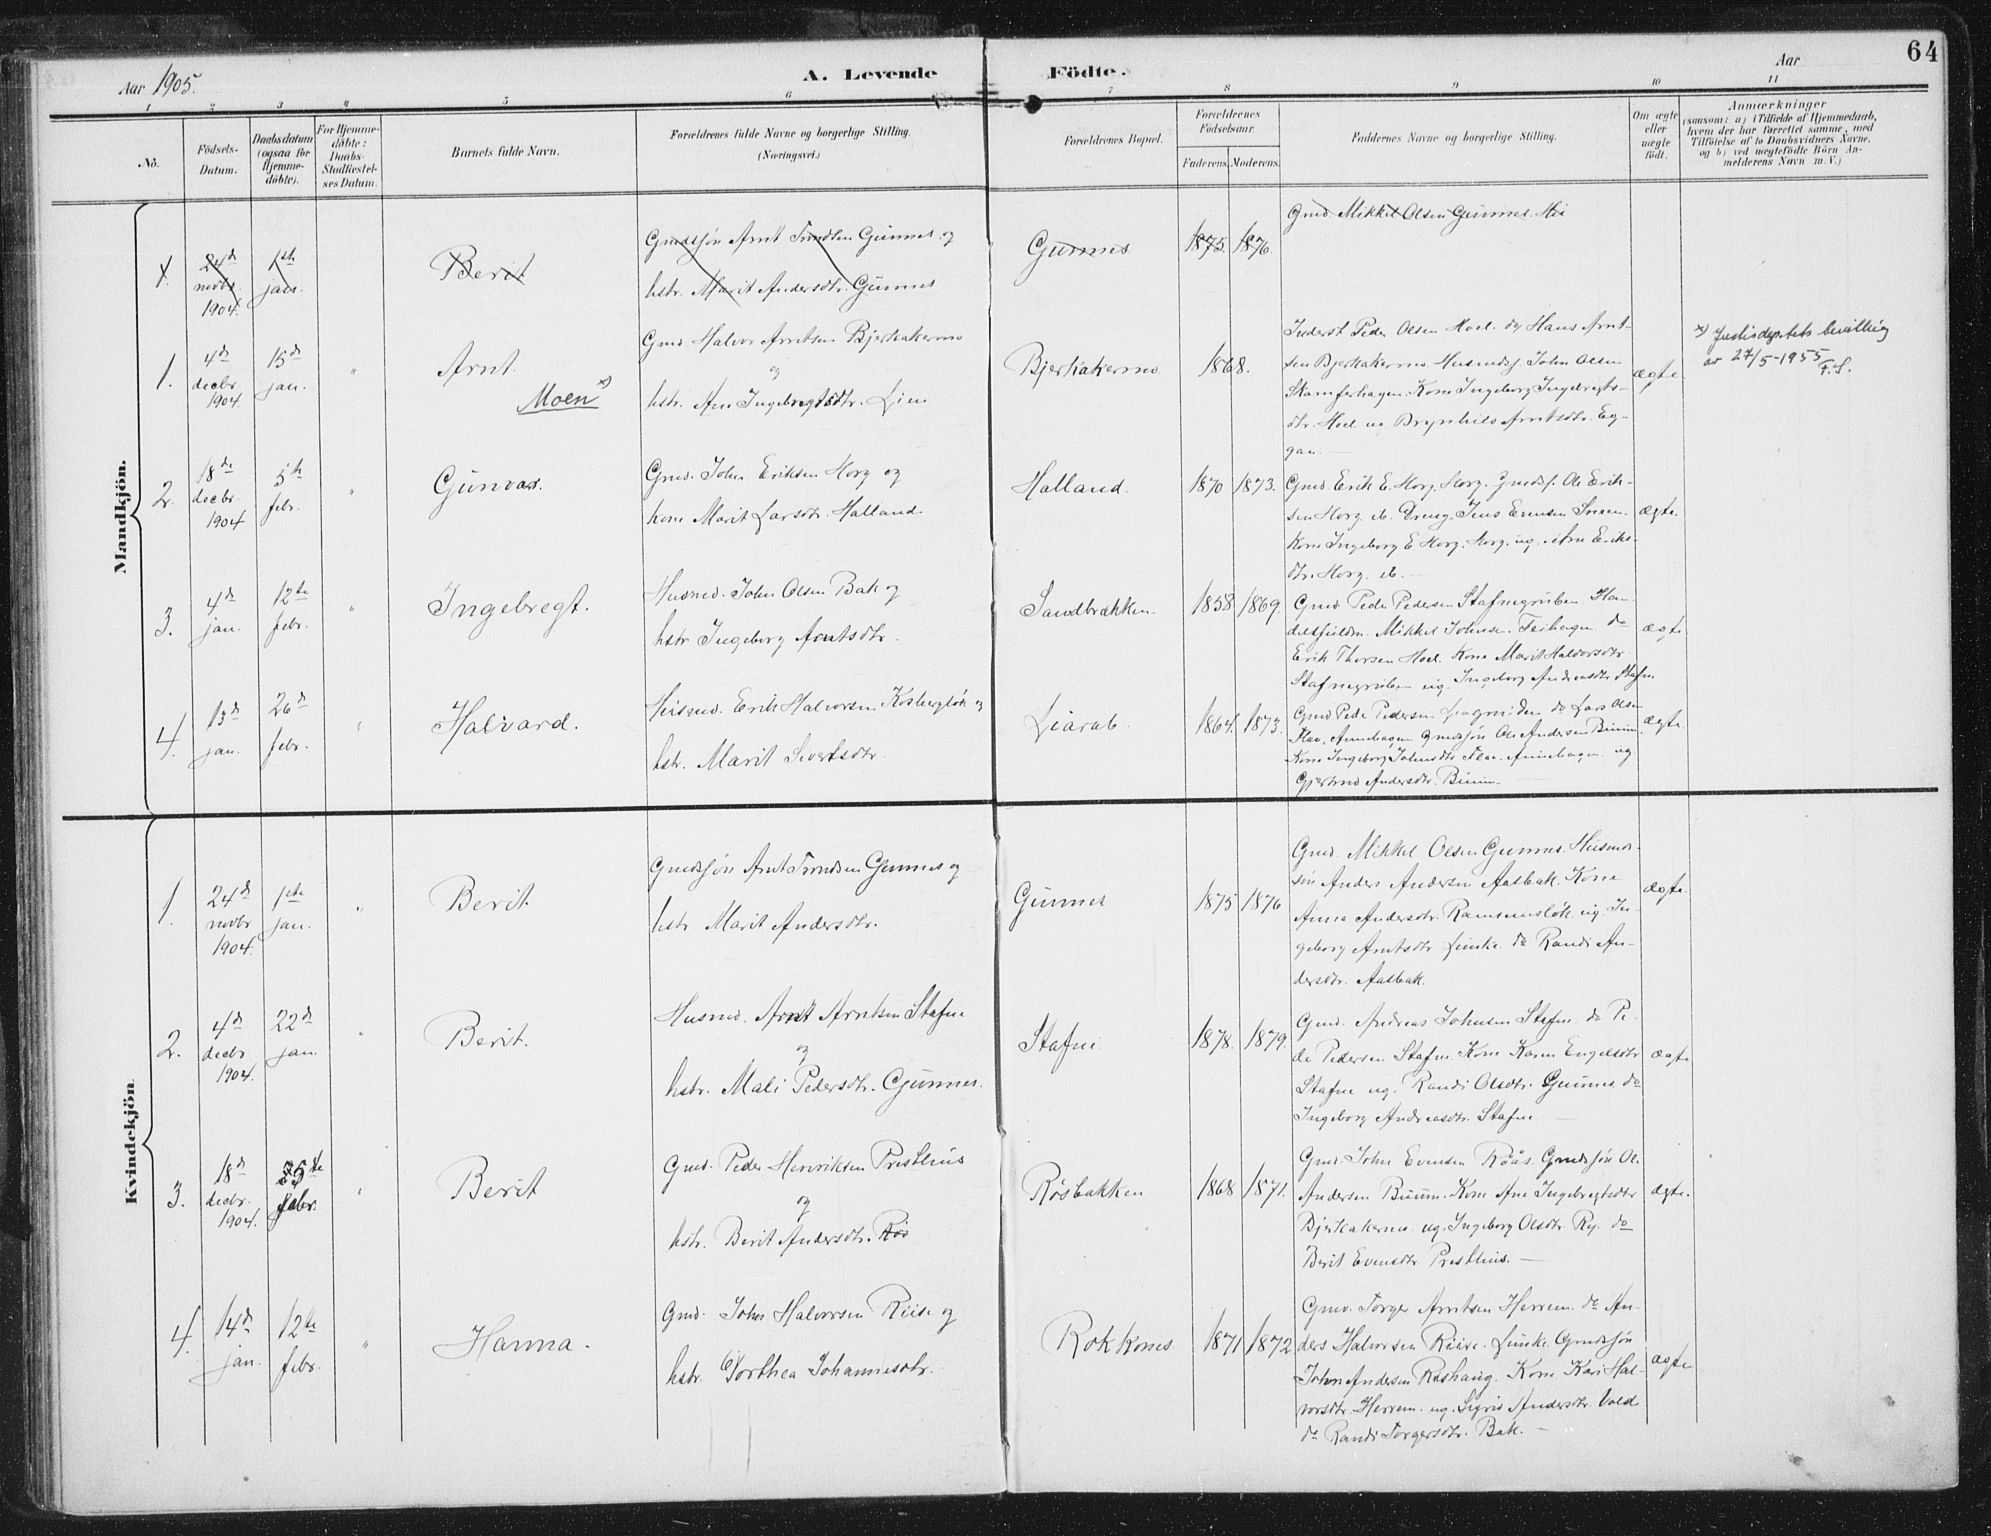 64
Aar 1905.
A. Levende Födte.
Aar
1 2 3 4 5 6 7 8 9 10 11
No.
Födsels-Datum.
Daabsdatum (ogsaa for Hjemme-döbte).
For Hjemme-döbte: Daabs-Stadfæstel-ses Datum.
Barnets fulde Navn.
Forældrenes fulde Navne og borgerlige Stilling.
(Næringsvei.)
Forældrenes Bopæl.
Forældrenes Födselsaar.
Faderens. Moderens.
Faddernes Navne og borgerlige Stilling.
Om ægte eller uægte födt.
Anmærkninger
(saasom: a) i Tilfælde af Hjemmedaab,
hvem der har forrettet samme, med
Tilföielse af to Daabsvidners Navne,
og b) ved uægtefödte Börn An-
melderens Navn m. V.)
Mandkjön.
1. 24d novbr. 1904. 1ste jan.
Berit
Gmdsjøn Arnt Trondsen Gunnes og
hstr. Marit Andersdtr. Gunnes
Gunnes
1875. 1876.
Gmd. Mikkel Olsen Gunnes.
1. 4d decbr. 1904. 15d jan. "
Arnt.
Moen x)
Gmd. Halvor Arntsen Bjerkakermo
og
hstr. Ane Ingebregtsdtr. Lien
Bjerkakermo
1868.
Inderst Peder Olsen Hoel. do Hans Arnt-
sen Bjerkakermo Husmdsj. John Olsen
Skamferhagen. Kone Ingeborg Ingebregts-
dtr. Hoel ug. Brynhild Arntsdtr. Eg-
gan. —
ægte
x) Justisdeptets bevilling
av 27/5-1955
F.S.
2. 18de decbr. 1904 5te febr. "
Gunvar.
Gmd. John Eriksen Horg og
kone Marit Larsdtr. Halland.
Halland.
1870 1873.
Gmd Erik E. Horg. Horg. Gmdsj. Ole Erik-
sen Horg. ib. Dreng. Jens Evensen Sneen.
Kone Ingeborg E Horg. Horg. ug. Ane Eriks-
dtr. Horg. ib. —
ægte.
3. 4d jan. 12te febr. "
Ingebregt.
Husmd. John Olsen Bak og
hstr Ingeborg Arntsdtr.
Sandbrækken
1858 1869.
Gmd Peder Pedersen Stafnegruben. Han-
Mikkel Johnsen. do
Erik Thorsen Hoel. Kone Marit Halvorsdtr.
Stafnegruben ug. Ingeborg Andreasdtr Stafne
ægte
4. 13d jan. 26d febr. "
Halvard.
Husmd. Erik Halvorsen og
hstr. Marit Sivertsdtr.
Liarab.
1864. 1873.
Gmd. Peder Pedersen do Lars Olsen
Gmdsjøn Ole Andersen Buum.
Kone Ingeborg Johnsdtr og
Gjertrud Andersdtr. Buum.
ægte.
Kvindekjön.
1. 24d novbr 1904. 1ste jan. "
Berit.
Gmdsjøn Arnt Trondsen Gunnes og
hstr. Marit Andersdtr.
Gunnes
1875 1876
Gmd. Mikkel Olsen Gunnes. Husmds-
søn Anders Andersen Aalbak. Kone
Anne Andersdtr. Ramsemsløk. ug. In-
geborg Arntsdtr do Randi An-
dersdtr. Aalbak.
ægte.
2. 4d decbr 1904. 22d jan. "
Berit.
Husmd. Arnt Arntsen Stafne
og
hstr. Mali Pedersdtr. Gunnes.
Stafne.
1878. 1879.
Gmd. Andreas Johnsen Stafne. do Pe-
der Pedersen Stafne. Kone Karen Engelsdtr
Stafne ug. Randi Olsdtr. Gunnes. do
Ingeborg Andreasdtr. Stafne. —
ægte
3. 18d decbr. 1904. 5te febr. "
Berit
Gmd. Peder Henriksen Presthus
og
hstr. Berit Andersdtr. Røs
Røsbakken
1868 1871.
Gmd. John Evensen Røås. Gmdsjøn Ole
Andersen Buum. Kone Ane Ingebregtsdtr
Bjerkakermo. ug. Ingeborg Olsdtr. Ry. do
Berit Evensdtr Presthus. —
ægte.
4. 14d jan. 12te febr. "
Hanna.
Gmd. John Halvorsen Riise og
hstr. Dorthea Johannesdtr.
Rokkones
1871 1872
Gmd. Torger Arntsen Herrem. do An-
ders Halvorsen Riise. Gmdsjøn
John Andersen Røshaug. Kone Kari Hal-
vorsdtr. Herrem. ug. Sigrid Andersdtr. Vold
do Randi Torgersdtr. Bak. —
ægte